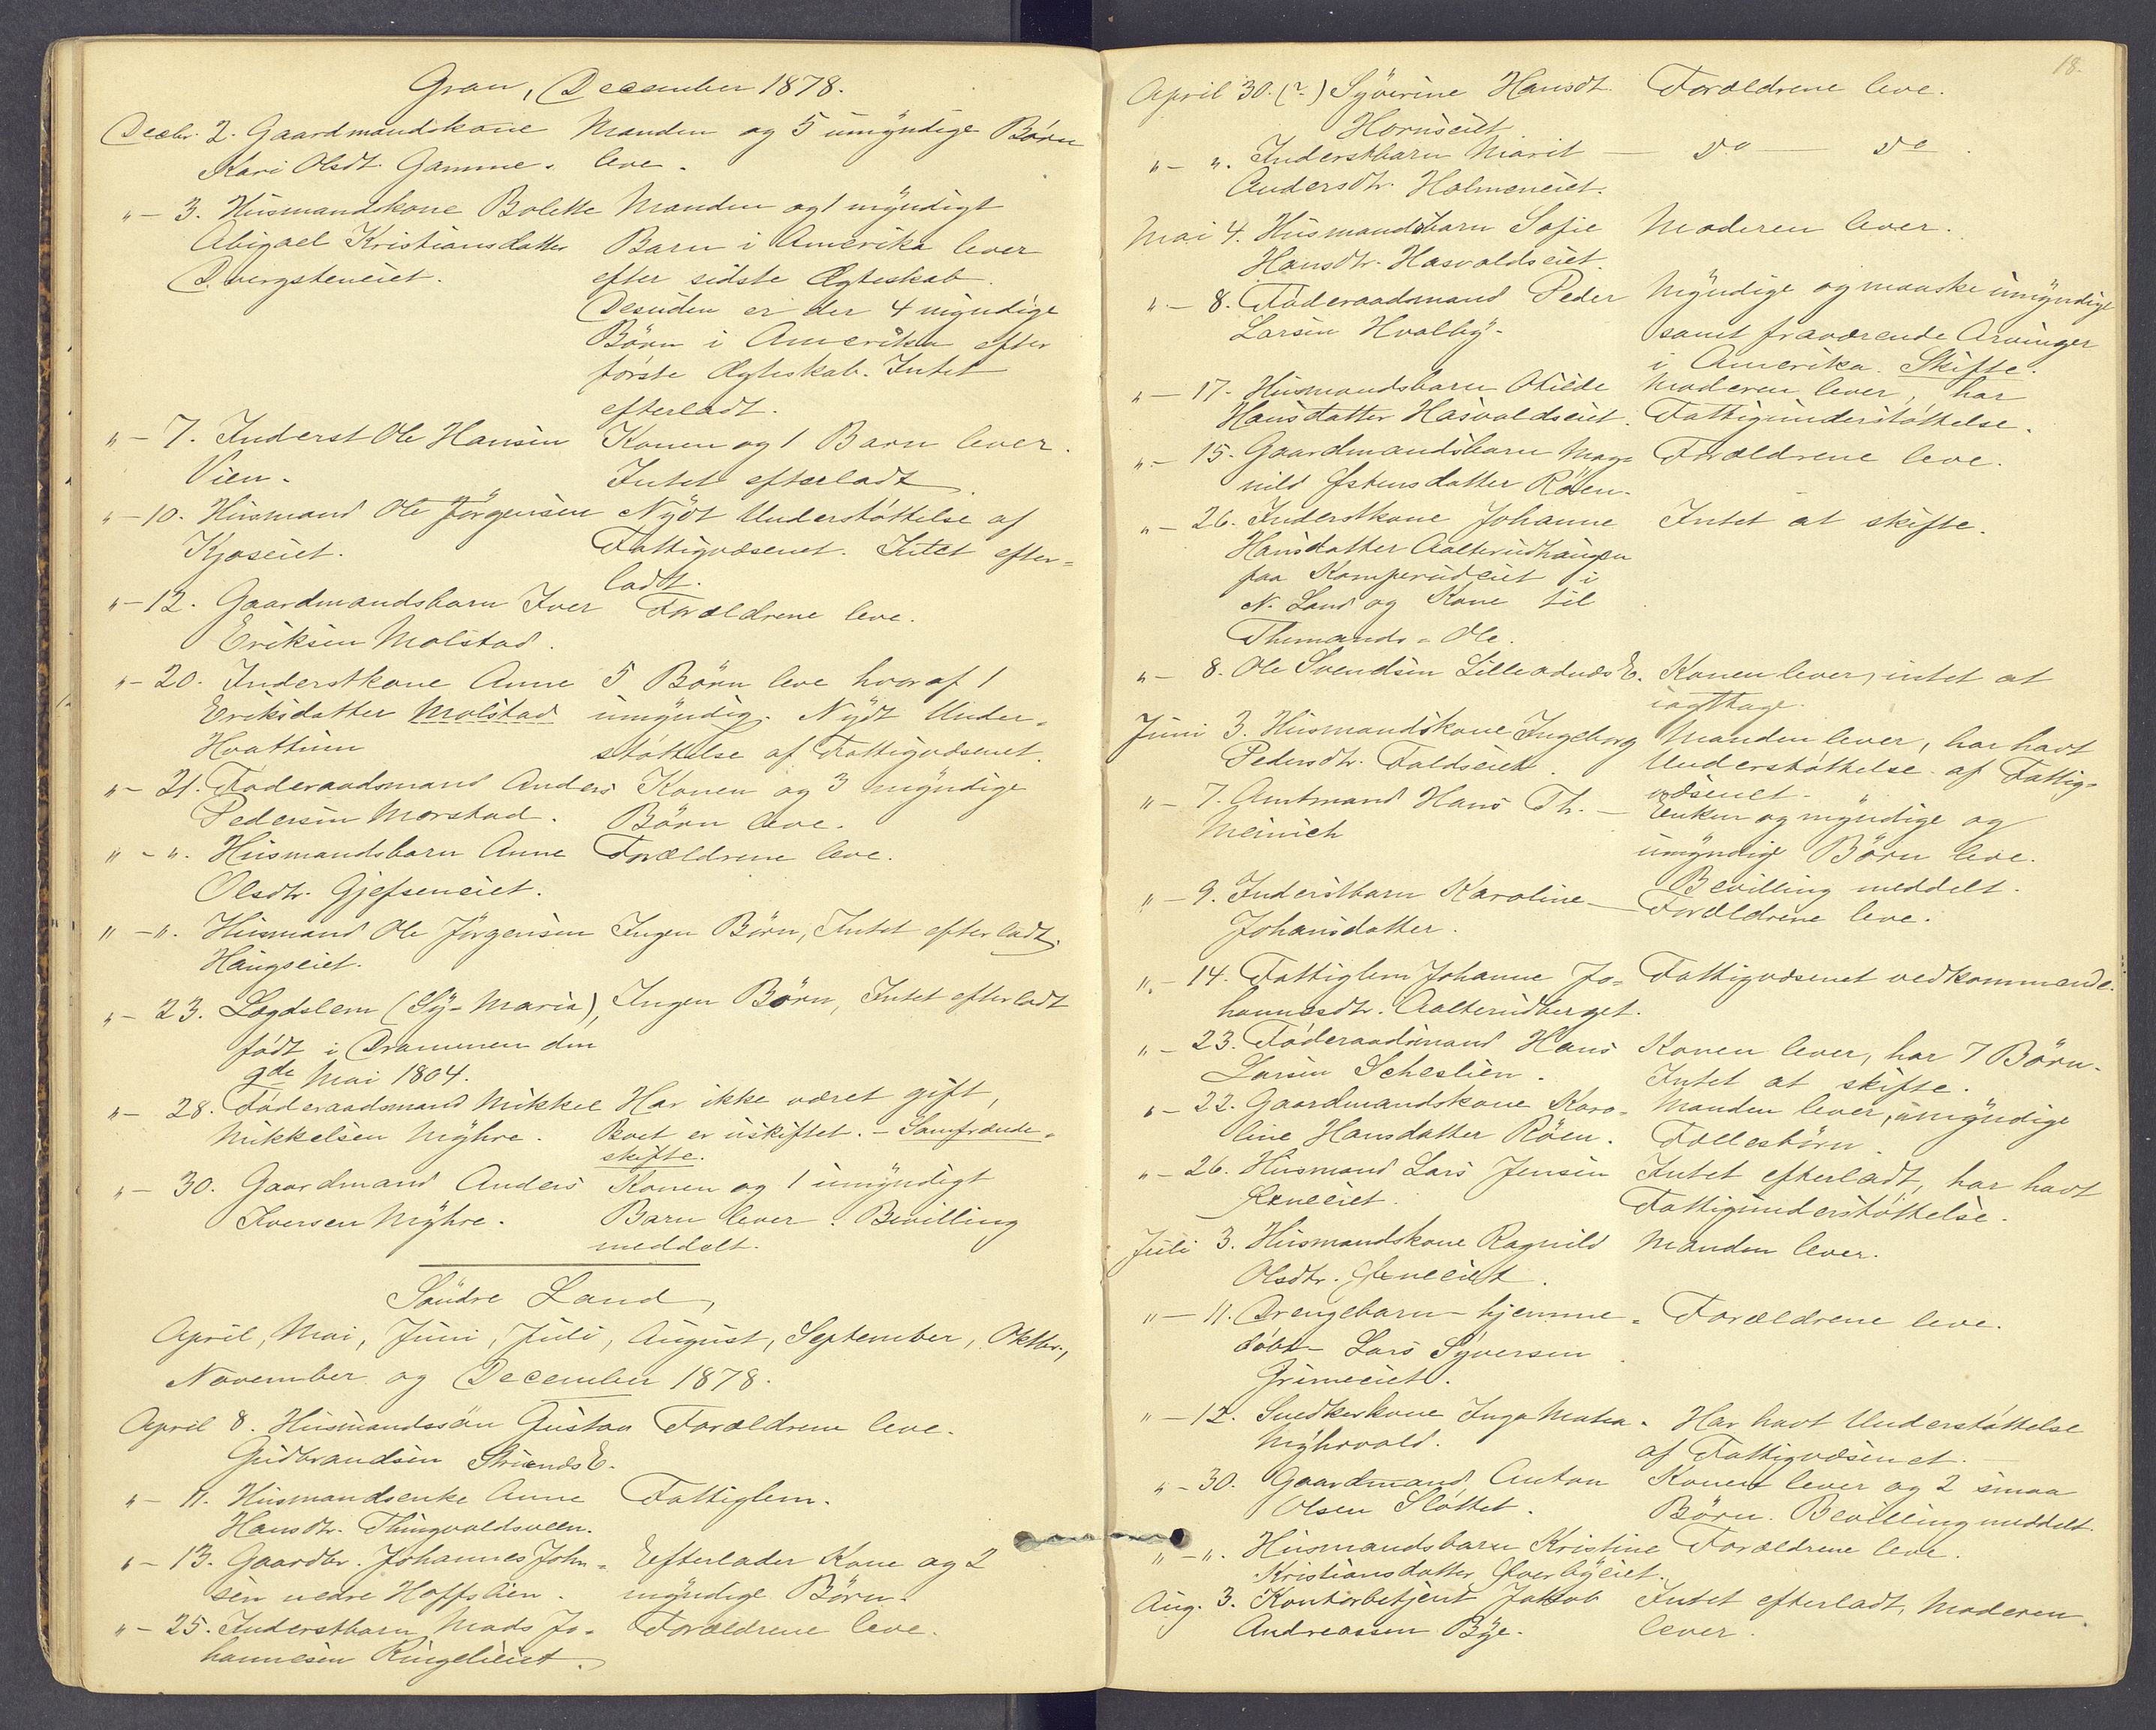 Gran, December 1878.
Decbr. 2. Gaardmandskone Manden og 5 umyndige Børn
Kari Olsdt. Gamme. leve.
"- 3. Husmandskone Bolette Manden og 1 myndigt
Abigael Kristiansdatter Barn i Amerika lever
Dvergsteneiet. efter sidste Ægteskab.
Desuden er der 4 myndige
Börn i Amerika efter
förste Ægteskab. Intet
efterladt.
"- 7. Inderst Ole Hansen Konen og 1 Barn lever.
Vien. Intet efterladt.
"- 10. Husmand Ole Jörgensen Nydt Understöttelse af
Kjoseiet. Fattigvæsenet. Intet efter-
ladt.
"- 12. Gaardmandsbarn Iver Forældrene leve.
Eriksen Molstad.
"- 20. Inderstkone Anne 5 Börn leve hvoraf 1
Eriksdatter Molstad umyndig. Nydt Under-
Hvattum stöttelse af Fattigvæsenet.
"- 21. Föderaadsmand Anders Konen og 3 myndige
Pedersen Morstad. Börn leve.
" - ". Husmandsbarn Anne Forældrene leve.
Olsdtr. Gjefseneiet.
" - ". Husmand Ole Jörgensen Ingen Börn, Intet efterladt.
Haugseiet.
"- 23. Lægdslem (Sy-Maria), Ingen Börn, Intet efterladt
födt i Drammen den
9de Mai 1804.
"- 28. Föderaadsmand Mikkel Har ikke været gift,
Mikkelsen Myhre. Boet er uskiftet. - Samfrænde-
skifte.
"- 30. Gaardmand Anders Konen og 1 umyndigt
Iversen Myhre. Barn lever. Bevilling
meddelt.
Söndre Land,
April, Mai, Juni, Juli, August, September, Oktbr.,
November og December 1878.
April 8. Husmandssön Gustav Forældrene leve.
Gudbrandsen StrandsE.
"- 11. Husmandsenke Anne Fattiglem.
Hansdtr. Thingvoldsveen.
"- 13. Gaardbr. Johannes John- Efterlader Kone og 2
sen nedre Hoffslien. myndige Börn.
"- 25. Inderstbarn Mads Jo- Forældrene leve.
hannesen Ringelieiet.
18.
April 30. (?) Syverine Hansdt. Forældrene leve.
Hornseiet
"- ". Inderstbarn Marit — do — do.
Andersdtr. Holmeneiet.
Mai 4. Husmandsbarn Sofie Moderen lever.
Hansdtr. Hasvoldseiet.
"- 8. Föderaadsmand Peder Myndige og maaske umyndige
Larsen Hvalby. samt fraværende Arvinger
i Amerika. Skifte.
"- 17. Husmandsbarn Otilde Moderen lever, har
Hansdatter Hasvoldseiet. Fattigunderstöttelse.
"- 15. Gaardmandsbarn Mag- Forældrene leve.
nild Østensdatter Röen.
"- 26. Inderstkone Johanne Intet at skifte.
Hansdatter Aalterudhaugen
paa Kamperudeiet i
N. Land og Kone til
Themands-Ole.
"- 8. Ole Svendsen LilleodnæsE. Konen lever, intet at
iagttage.
Juni 3. Husmandskone Ingeborg Manden lever, har havt
Pedersdtr. Foldseiet. Understöttelse af Fattig-
væsenet.
"- 7. Amtmand Hans Th. — Enken og myndige og
Meinich umyndige Börn leve.
Bevilling meddelt.
"- 9. Inderstbarn Karoline — Forældrene leve.
Johansdatter.
"- 14. Fattiglem Johanne Jo- Fattigvæsenet vedkommende.
hannesdtr. Aalterudberget.
"- 23. Föderaadsmand Hans Konen lever, har 7 Börn.
Larsen Scheslien. Intet at skifte.
"- 22. Gaardmandskone Karo- Manden lever, umyndige
line Hansdatter Röen. Fællesbörn.
"- 26. Husmand Lars Jensen Intet efterladt, har havt
Fattigunderstöttelse.
Juli 3. Husmandskone Ragnild Manden lever.
Olsdtr.
"- 11. Drengebarn - hjemme- Forældrene leve.
döbt - Lars Syversen
Grimeeiet.
"- 12. Snedkerkone Inga Matea. Har havt Understöttelse
Myhrvold. af Fattigvæsenet. —
"- 30. Gaardmand Anton Konen lever og 2 smaa
Olsen Slöttet. Börn. Bevilling meddelt.
"- ". Husmandsbarn Kristine Forældrene leve.
Kristiansdatter Overbyeiet.
Aug. 3. Kontorbetjent Jakob Intet efterladt, Moderen
Andreassen Bye. lever.